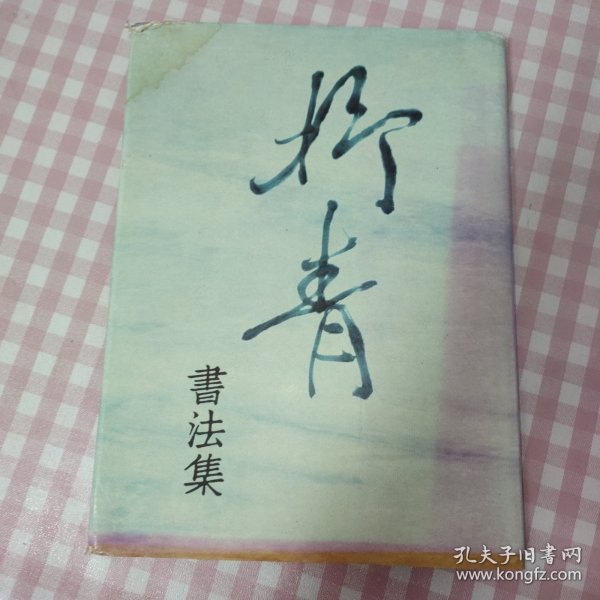 柳青
書法集
孔夫子旧書网
www.kongfz.com